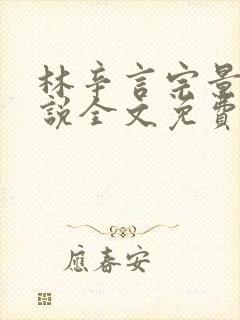 林辛言宗景
說全文免費
應春安